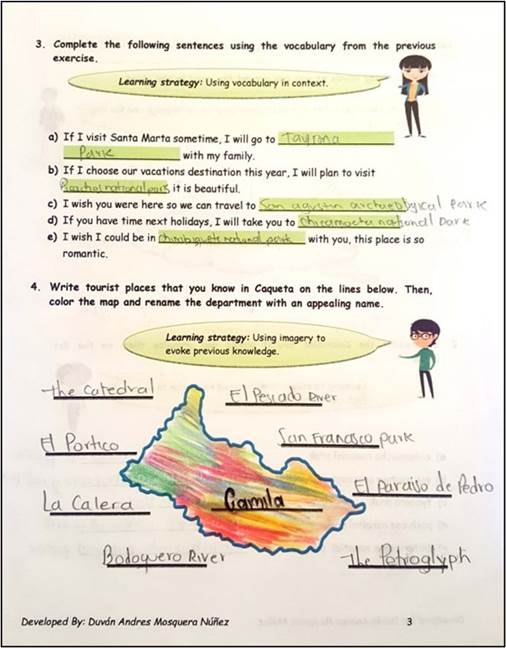 3. Complete the following sentences using the vocabulary from the previous
exercise.
Learning strategy: Using vocabulary in context.
a) If I visit Santa Marta sometime, I will go to Tayrona
Park with my family.
b) If I choose our vacations destination this year, I will plan to visit
national park, it is beautiful.
c) I wish you were here so we can travel to San agustin archaeological Park
d) If you have time next holidays, I will take you to Chicamocha national Park
e) I wish I could be in Chiribiquete national park with you, this place is so
romantic.
4. Write tourist places that you know in Caqueta on the lines below. Then,
color the map and rename the department with an appealing name.
Learning strategy: Using imagery to
evoke previous knowledge.
the Catedral
El Pescado River
El Portico
San Francisco Park
La Calera
Camila
El Paraiso de Pedro
Bodoquero River
the Petroglyph
Developed By: Duván Andres Mosquera Núñez 3